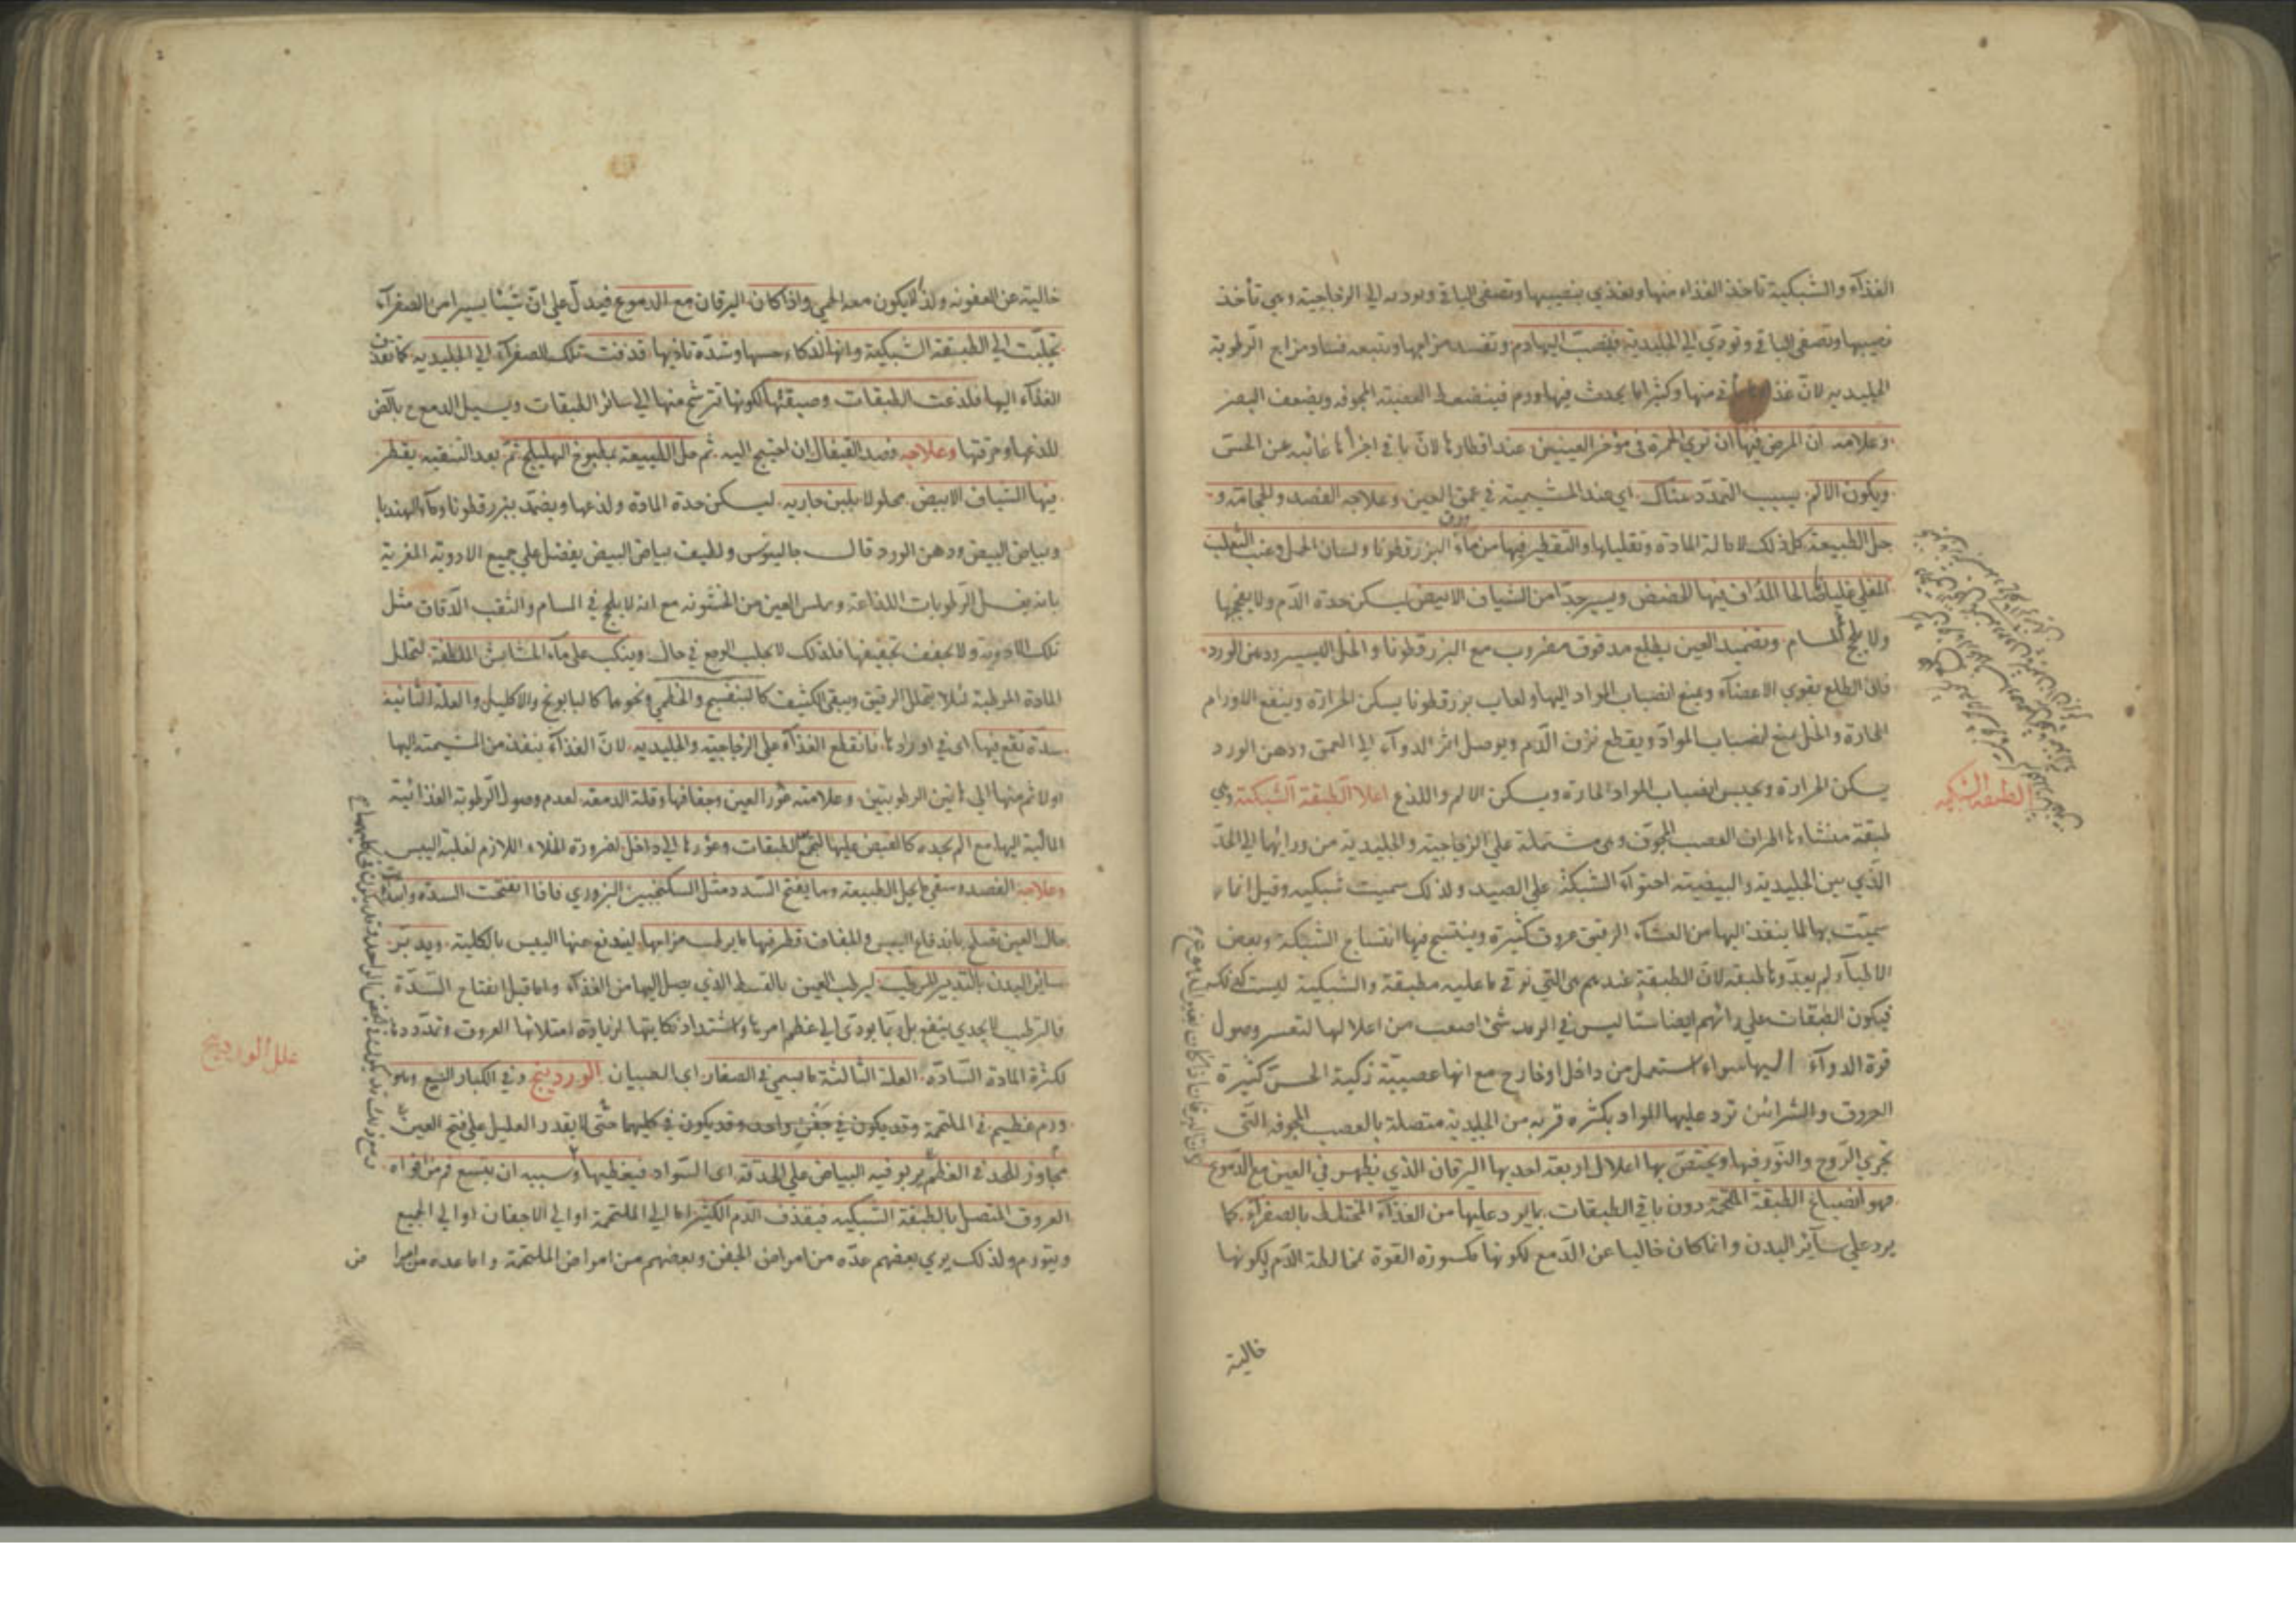 الغذآء والشبكية تاخذ الغذاء منها وتغذي بنصيبها وتصفى الباقى وتوديه الى الزجاجية وهى تأخذ
نصيبها وتصفى الباقى وتودّي الى الجليدية فينصبّ اليها دم وتفسد مزاجها ويتبعه فساد مزاج الرّطوبة
الجليدية لانّ غذاءها يأتى منها وكثيرا ما يحدث فيها ورم فينضغط العصبة المجوفه ويضعف البصر
وعلامة انّ المرض فيها ان تري الحمرة فى مؤخر العينين عند اقطارها لانّ باقى اجزائها غائبه عن الحسّ
ويكون الالم بسبب التمدّد هناك اى عند المشيمية فى عمق العين وعلاجه الفصد والحجامة و
حل الطبيعة كل ذلك لامالة المادة وتقليلها والتقطير فيها من مآء ورق البزرقطونا ولسان الحمل وعنب الثعلب
المغلي غليانا المذاف فيها الحضض ويسير جدّا من الشياف الابيض ليسكن حدة الدّم ولا يفججها
ولا يلجّج المسام وتضميد العين بطلع مدقوق مضروب مع البزرقطونا والخل اليسير ودهن الورد
فانّ الطلع يقوي الاعضآء ويمنع انصباب المواد اليها ولعاب بزرقطونا يسكن الحرارة وينفع الاورام
الحادة والخل يمنع انصباب الموادّ ويقطع نزف الدّم ويوصل اثر الدوآء الى العمق ودهن الورد
يسكن الحرارة ويحبس انصباب المواد الحارة ويسكن الالم واللذع اعلال الطبقة الشبكية وهى
الطبقة الشبكيه
طبقة منشاءها اطراف العصب المجوّف وهى مشتملة على الزجاجية والجليدية من ورائهما الى الحدّ
الذّي بين الجليدية والبيضية احتوآء الشبكة على الصيد ولذلك سميت شبكيه وقيل انما
سميّت بها لما ينفذ اليها من الغشآء الرقيق عروق كثيرة وينتسج فيها انتساج الشبكة وبعض
الاطبآء لم يعدّوها طبقة لانّ الطبقة عندهم هى التى توقى ما عليه مطبقة والشبكية ليست كذلك
فيكون الطبقات على رائهم ايضا ستّا ليس فى الرمد شئ اصعب من اعلالها لتعسر وصول
قوة الدوآء اليها سواء استعمل من داخل او خارج مع انها عصبيّة زكية الحسّ كثيرة
العروق والشرائين ترد عليها المواد بكثرة قريبه من الجليدية متصلة بالعصب المجوفه التّى
تجري الرّوح والنوّر فيها ويختصّ بها اعلال اربعة احديها اليرقان الذي يظهر فى العين مع الدّموع
فهو انصباغ الطبقة الملتحمة دون باقى الطبقات بما يرد عليها من الغذآء المختلط بالصفرآء كما
يرد على سآئر البدن وانما كان خاليا عن الدّمع لكونها مكسورة القوة بمخالطة الدّم ولكونها
خالية
خالية عن العفونه ولذا لا يكون معه الحمى واذا كان اليرقان مع الدموع فيدلّ على انّ شيئا يسيرا من الصفرآء
تجلبّت الى الطبقة الشبكية وانها لذكاء حسها وشدّة تاذيها قذفت تلك الصفرآء الى الجليديه كما تقذف
الغذآء اليها فلذعت الطبقات وصبغتها لكونها تترشح منها الى سائر الطبقات ويسيل الدمع ح بالعرض
للذعها وحرقتها وعلاجه فصد القيفال ان احتيج اليه ثم حل الطبيعة بمطبوخ الهليلج ثمّ بعد التنقيه يقطر
فيها الشياف الابيض محلولا بلبن جاريه ليسكن حدة المادة ولذعها ويضمّد ببزرقطونا ومآء الهندبا
وبياض البيض ودهن الورد قال جالينوس ولطيف بياض البيض يفضل على جميع الادوية المغرية
بانه يغسل الرّطوبات اللذاعة ويملس العين من الخشونه مع انه لا يلجّ فى المسام والثقب الدّقاق مثل
تلك الادوية ولا يجفف تجفيفها فلذلك لا يجلب الوجع فى حال وينكب على مآء الحشايش الملطفة لتحلل
المادة المرطبة لئلا يتحلل الرقيق ويبقى الكثيف كالبنفسج والخطمي ونحوهما كالبابونج والاكليل والعلة الثانية
سدّة تقع فيها اى فى اورادها فانقطع الغذآء على الزجاجية والجليديه لانّ الغذآء ينفذ من المشيمة اليها
اولا ثم منها الى هاتين الرطوبتين وعلامته غور العين وجفافها وقلة الدمعة لعدم وصول الرّطوبة الغذائية
المائية اليها مع الم يجده كالقبض عليها لتجمع الطبقات وغورها الى داخل لضرورة الخلاء اللازم لغلبة اليبس
وعلاجه الفصد وسقى ما يحل الطبيعة وما يفتح السّدد مثل السكنجبين البزوري فاذا انفتحت السدّة وابتدأ
حال العين تصلح باندفاع اليبس والجفاف قطر فيها ما يرطب مزاجها ليندفع عنها اليبس بالكلية ويدبّر
سائر البدن بالتدبير المرطّب ليرطب العين بالقسط الذي يصل اليها من الغذآء واما قبل انفتاح السّدّة
فالترطيب لا يجدي بنفع بل ربّما يودّى الى عظم امرها واشتداد نكايتها لزيادة امتلائها العروق وتمدّدها
لكثرة المادة السّادّه العلة الثالثة ما يسمي فى الصغار اى الصبيان الوردينج وفى الكبار النبع وهو
علل الوردينج
ورم عظيم فى الملتحمة وقد يكون فى جفن واحد وقد يكون فى كليهما حتّى لا يقدر العليل على فتح العين
مجاوز الحد فى العظم يربو فيه البياض على الحدقة اى السّواد فيغطيها وسببه ان يتسع فم من افواه
العروق المتصل بالطبقة الشبكيه فيقذف الدّم الكثير اما الى الملتحمة او الى الاجفان او الى الجميع
ويتورم ولذلك يري بعضهم عدّه من امراض الجفن وبعضهم من امراض الملتحمة واما عده من امرا
ض